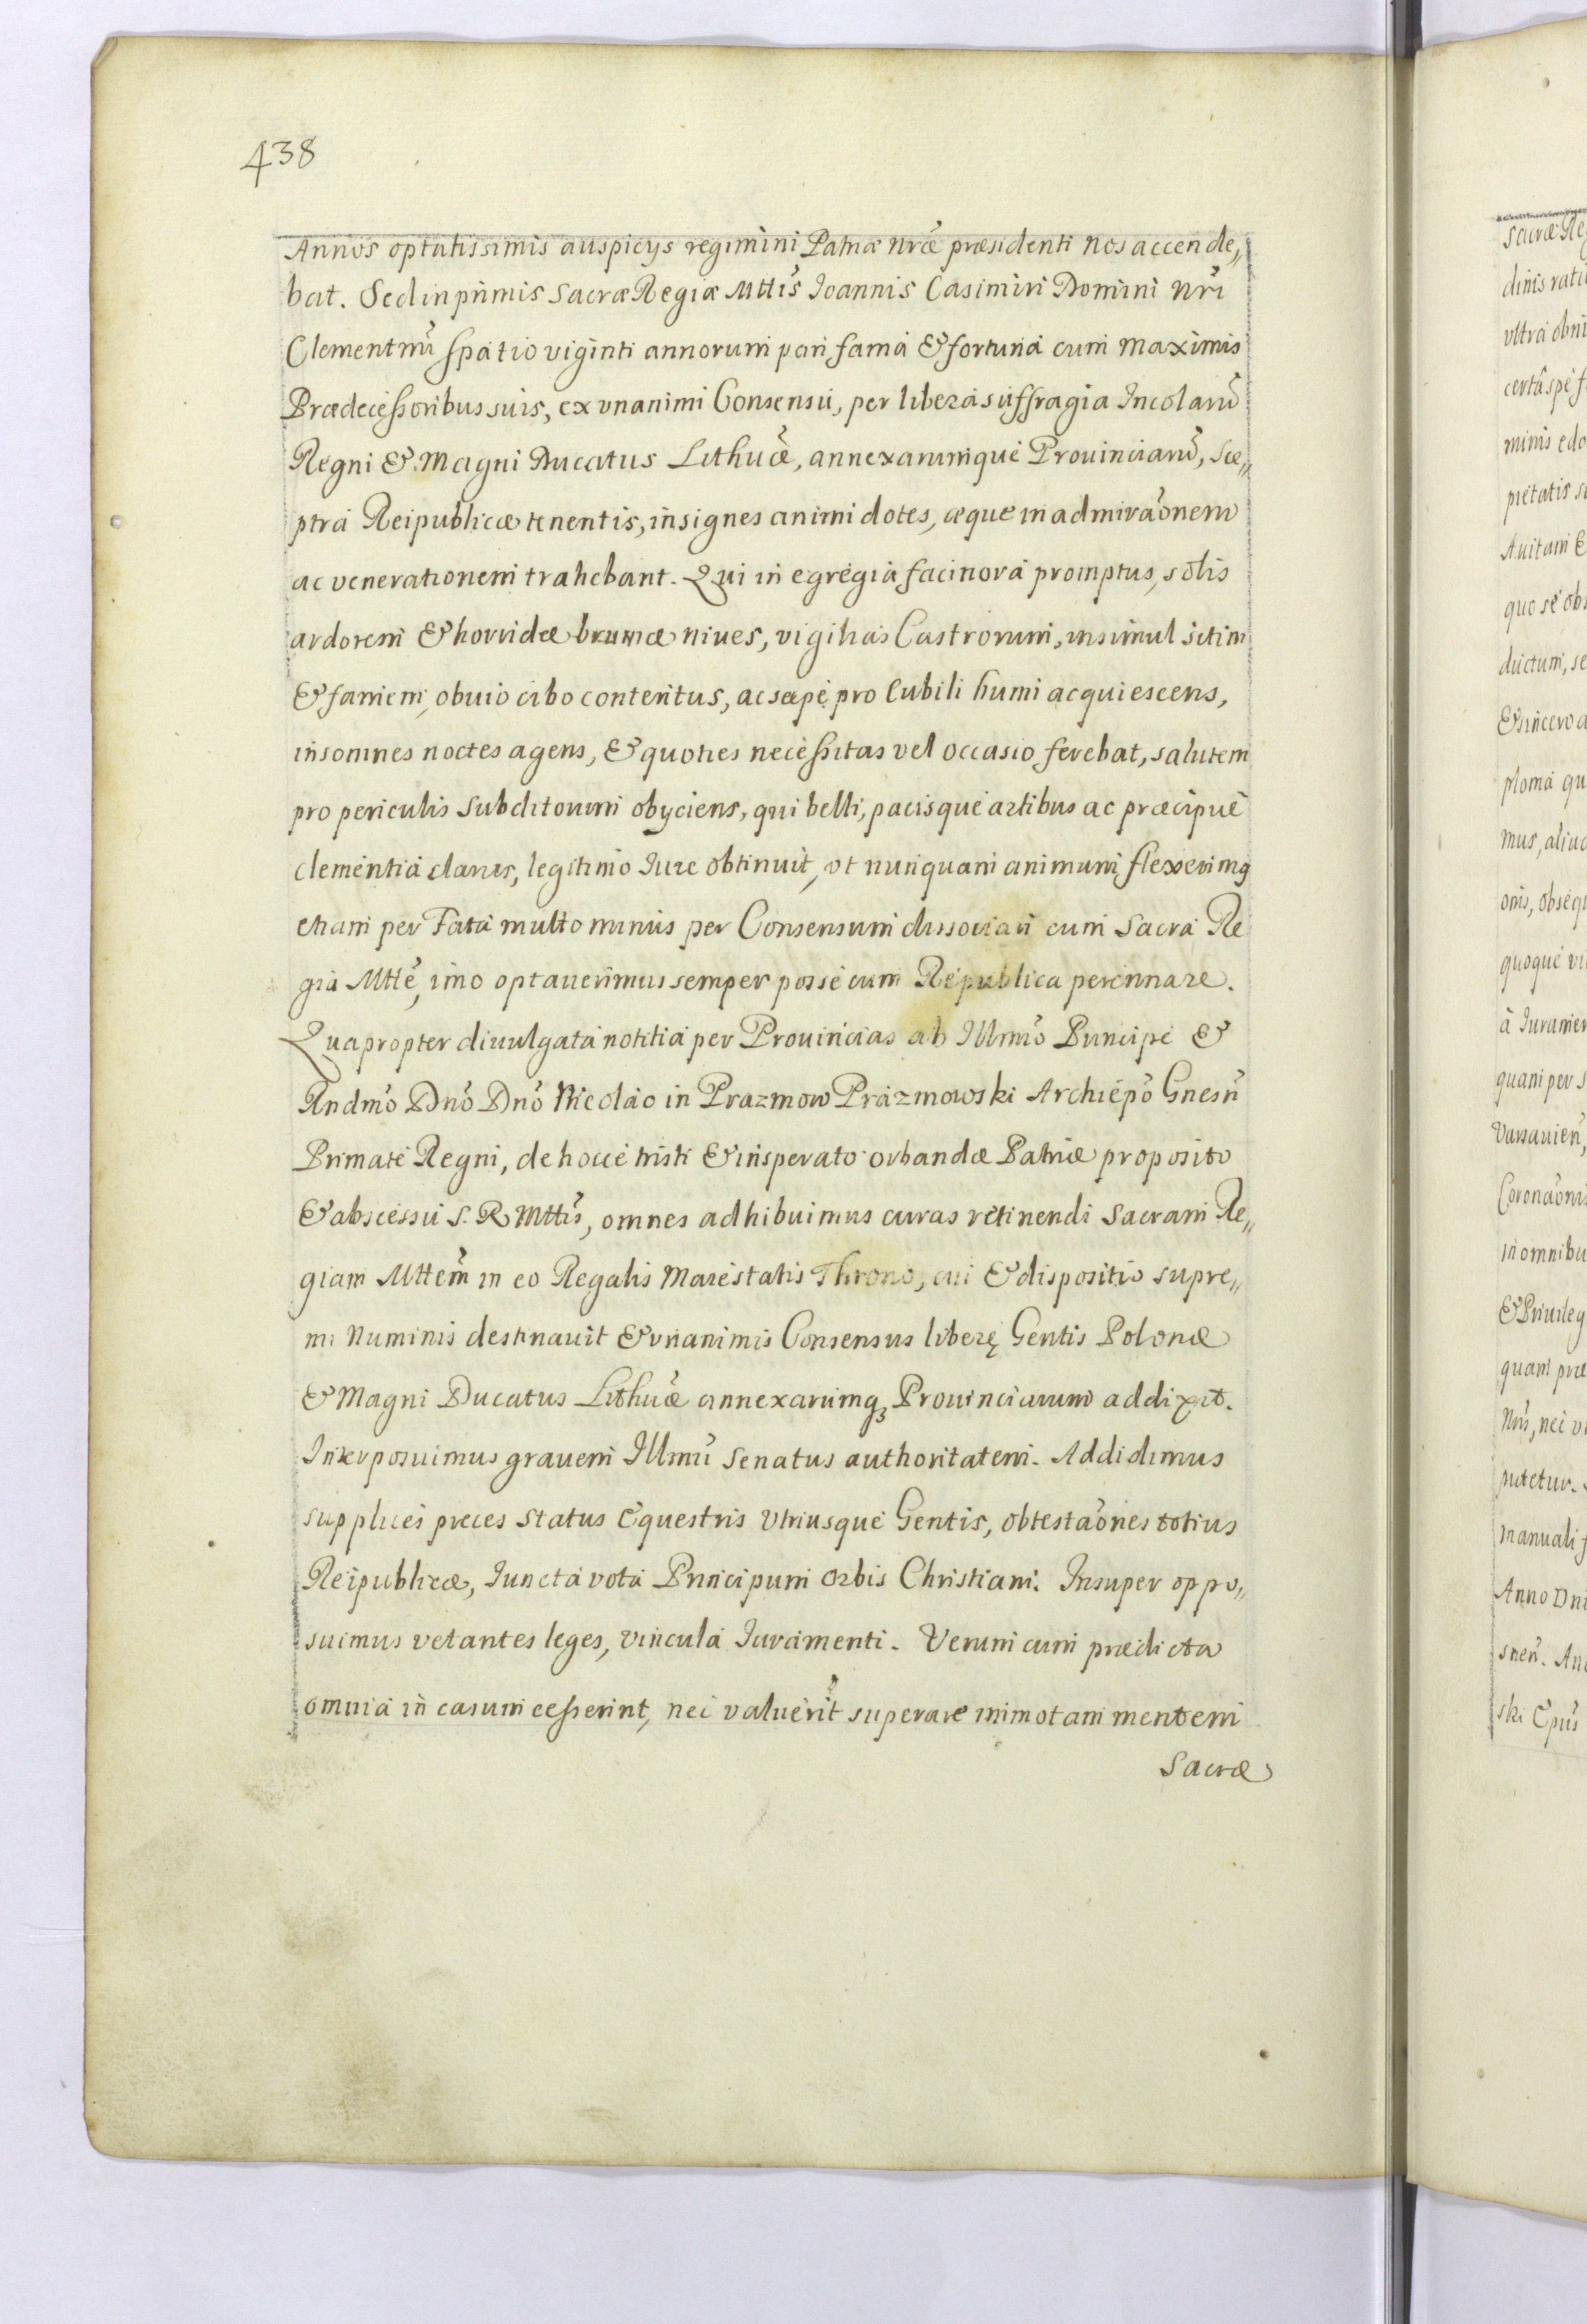 438
Annos optatissimis auspicys regimini Patriæ nræ̃ præsidenti nos accende„
bat. Sed inprimis Sacræ Regiæ Mttis̃ Ioannis Casimiri Domini nr̃i
Clementmĩ spatio viginti annorum pari fama & fortuna cum maximis
Prædecessoribus suis, ex vnanimi Consensu, per libera suffragia Incolarũ
Regni & Magni Ducatus Lithuæ̃, annexarumque Prouinciarũ, Sce„
ptra Reipublicæ tenentis, insignes animi dotes, æque in admiraõnem
ac venerationem trahebant. Qui in egregia facinora promptus, solis
ardorem & horridæ brumæ niues, vigilias Castrorum, insimul sitim
& famem, obuio cibo contentus, ac sæpe pro Cubili humi acquiescens,
insomnes noctes agens, & quoties necessitas vel occasio ferebat, salutem
pro periculis subditorum obyciens, qui belli, pacisque artibus ac præcipuè
clementia clarus, legitimo Iure obtinuit, vt nunquam animum flexerimq
etiam per Fata multo minus per Consensum dissociari cum Sacra Re
gia Mttẽ, imo optauerimus semper posse cum Republica perennare.
Quapropter diuulgata notitia per Prouincias ab Illmõ Principe &
Rndmõ Dnõ Dnõ Nicolao in Prazmow Prazmowski Archiepõ Gnesñ
Primate Regni, de hocce tristi & insperato orbandæ Patriæ proposito
& abscessu S. R. Mttis̃, omnes adhibuimus curas retinendi Sacram Re„
giam Mttem̃ in eo Regalis Maiestatis Throno, cui & dispositio supre„
mi Numinis destinauit & vnanimis Consensus liberę Gentis Polonæ
& Magni Ducatus Lithuæ̃ annexarumq₃ Prouinciarum addixit.
Interposuimus grauem Illmĩ Senatus authoritatem. Addidimus
supplices preces Status Equestris Vtriusque Gentis, obtestaõnes totius
Reipublicæ, Iuncta vota Principum Orbis Christiani. Insuper oppo„
suimus vetantes leges, vincula Iuramenti. Verum cum prædicta
omnia in casum cesserint, nec valuerĩt superare immotam mentem
Sacræ